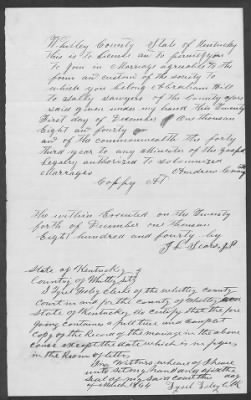 Whitley County State of Kentucky
This is to license and to permit you
To Join in Marriage agreable to the
form and custom of the society to
which you belong Abraham Hill
To Sally Sawyers of the County afore
said given under my hand this Twenty
First day of December One thousand
Eight and fourty
and of the commonwealth the forty
third year to any Minister of the Gospel
Legaly authorized to solomnized
Marriages Andrew Craig
Coppy Att
The within Executed on the Twenty
forth of December one thousan
Eight hundred and fourty by
State of Kentuckey
Country of Whitley Sct
I Clerk of the whitley county
Court in and for the county of Whitley
State of Kentuckey do certify that the fore
going contains a full true and compat
Copy of the Record of the marriage in the above
cause except the date which is in figures
in the Room of letters
In Witness whereof I have
unto set my hand and affix the
Seal of my said court this
of March 1864